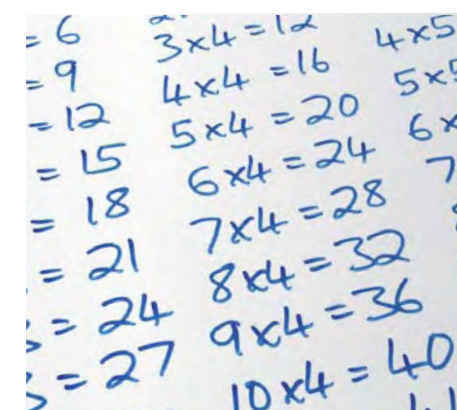 = 6
= 9
= 12
= 15
= 18
= 21
= 24
= 27
3x4 = 12
4x4 = 16
5x4 = 20
6x4 = 24
7x4 = 28
8x4 = 32
9x4 = 36
10x4 = 40
4x5
5x5
6x
7